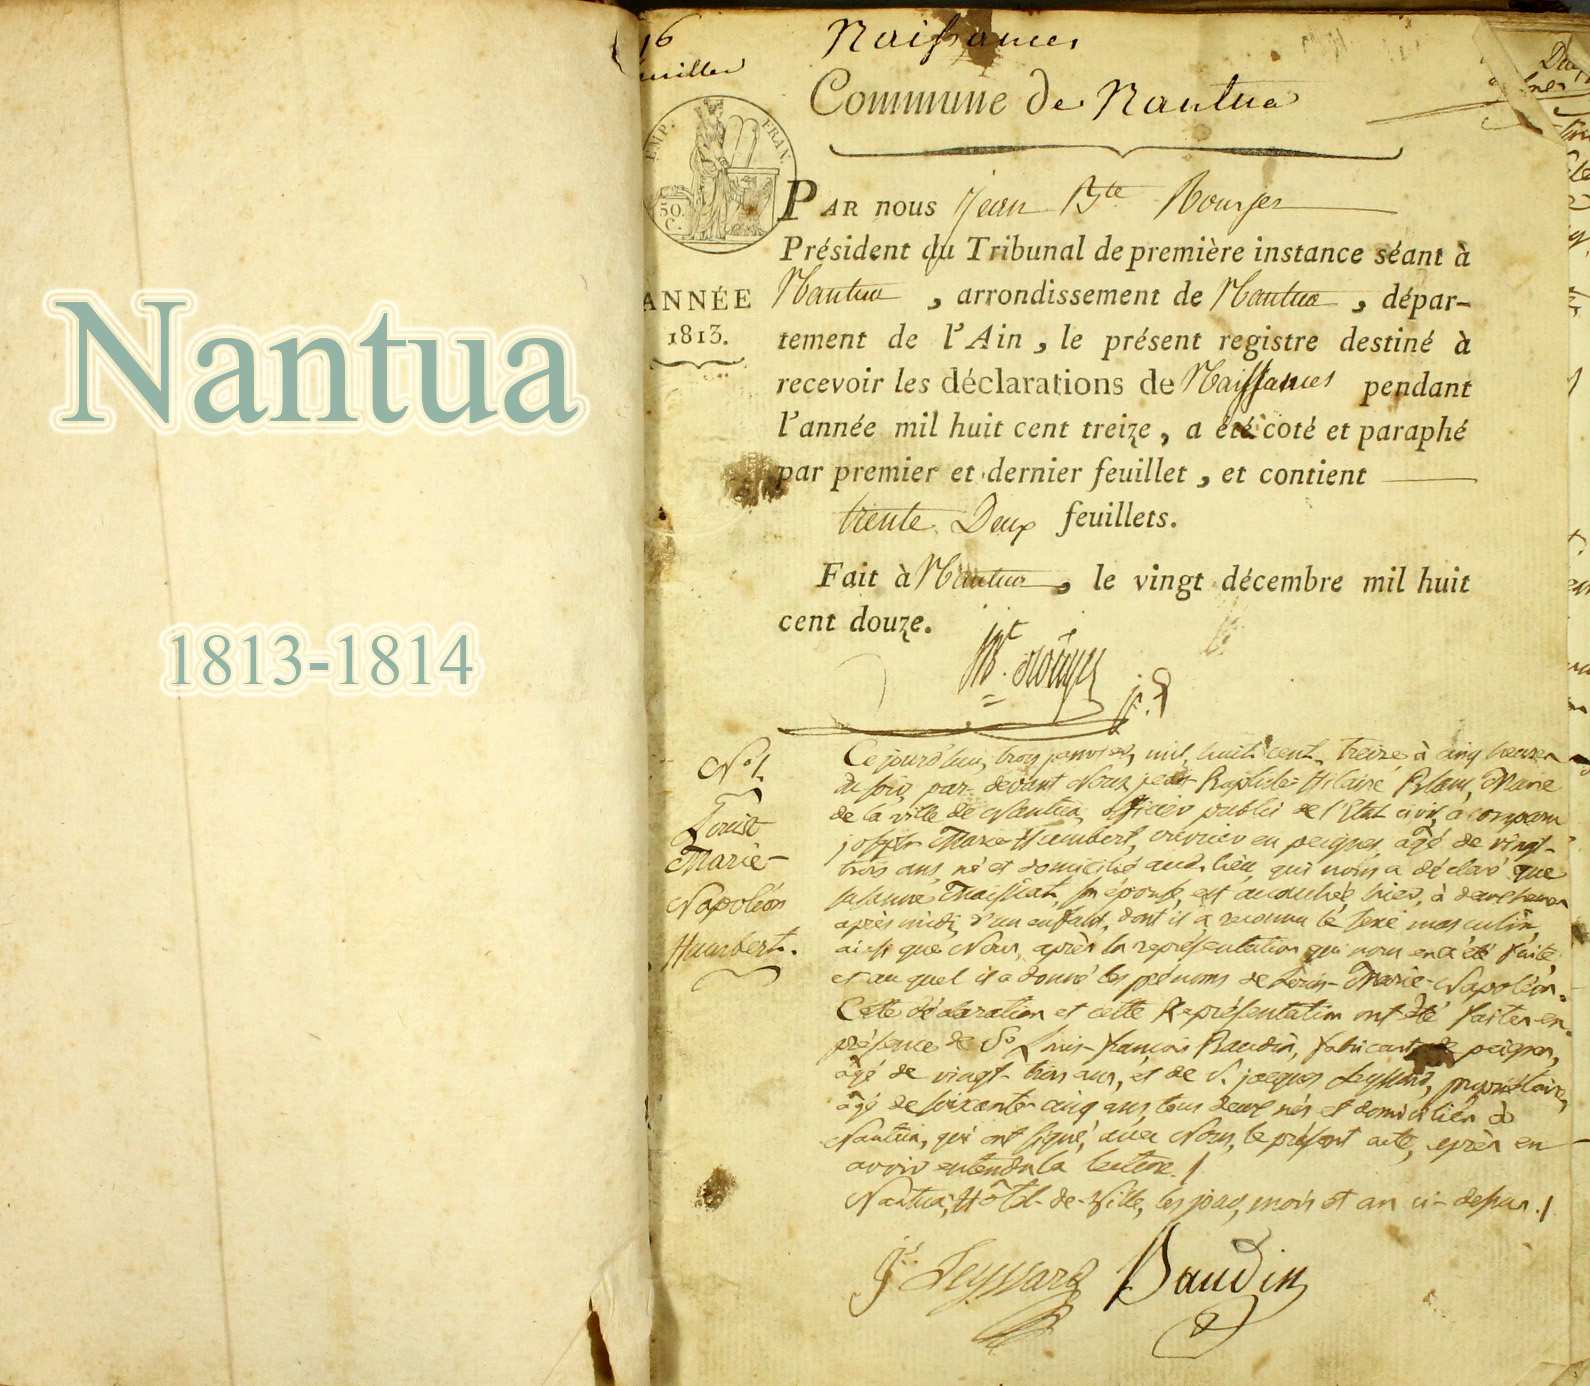 Nantua
1813-1814
Naissances
Commune de Nantua
EMP. FRAN.
50.
C.
ANNÉE
1813.
PAR nous Jean Bte
Président du Tribunal de première instance séant à
Nantua, arrondissement de Nantua, dépar-
tement de l'Ain, le présent registre destiné à
recevoir les déclarations de Naissances pendant
l'année mil huit cent treize, a été coté et paraphé
par premier et dernier feuillet, et contient
trente Deux feuillets.
Fait à Nantua, le vingt décembre mil huit
cent douze.
No 1.
Louis
Marie-
Napoléon
Humbert.
Ce jourd'hui, trois janvier, mil huit cent treize à cinq heures
du soir, par-devant Nous jean Baptiste-Hilaire Maire
de la ville de Nantua, officier public de l'Etat civil, a comparu
joseph Marie Humbert, ouvrier en peignes, âgé de vingt-
trois ans, né et domicilié aud. lieu, qui nous a déclaré que
son épouse, est accouchée, hier, à deux heures
après midi, d'un enfant, dont il a reconnu le sexe masculin,
ainsi que Nous, après la représentation qui nous en a été faite
et au quel il a donné les prénoms de Louis-Marie-Napoléon.
Cette déclaration et cette Représentation ont été faites en
présence de Sr Louis-françois Baudin, fabricant de peignes,
âgé de vingt-trois ans, et de S. jacques Leyssard, propriétaire,
âgé de soixante-cinq ans, tous deux nés et domiciliés à
Nantua, qui ont signé, avec Nous, le présent acte, après en
avoir entendu la lecture. /
Nantua, Hôtel-de-Ville, les jour, mois et an ci-dessus. /
Leyssard Baudin